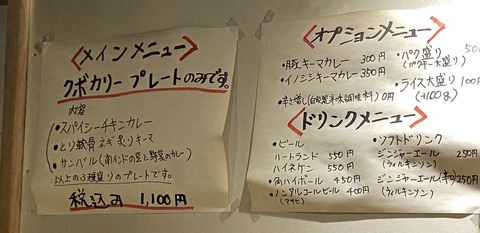 〈メインメニュー〉
クボカリー プレートのみです。
内容
・スパイシーチキンカレー
・とり軟骨ネギ炙りキーマ
・サンバル(南インドの豆と野菜のカレー)
以上の3種盛りのプレートです。
税込み 1,100円
〈オプションメニュー〉
・豚キーマカレー 300円
・イノシシキーマカレー 350円
・辛さ増し(自家製辛味調味料) 0円
・パクチー大盛り
・ライス大盛り 100円
(+100g)
〈ドリンクメニュー〉
・ビール
ハートランド 550円
ハイネケン 550円
・角ハイボール 450円
・ノンアルコールビール 400円
(アサヒ)
・ソフトドリンク
ジンジャーエール 250円
(ウィルキンソン)
ジンジャーエール(辛口) 250円
(ウィルキンソン)